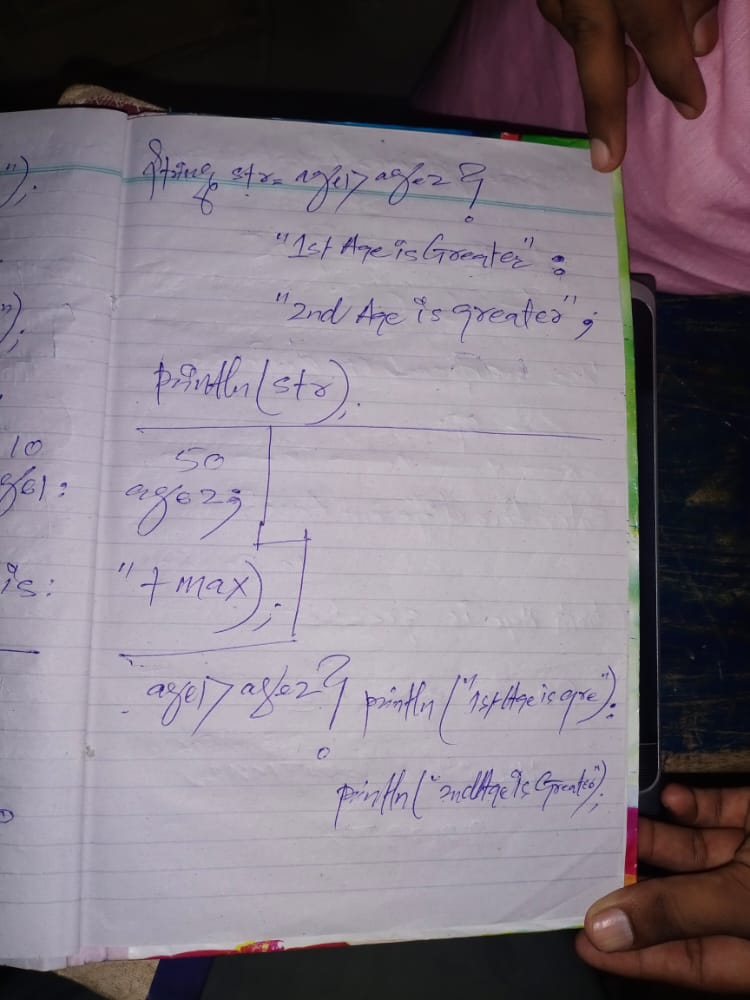 ");
String str= age1>age2 ?
"1st Age is Greater" :
"2nd Age is greater" ;
");
println(str);
10 50
age1: age2;
is: "+ max);
age1>age2 ? println("1st Age is gre"):
println("2nd Age is Greater");